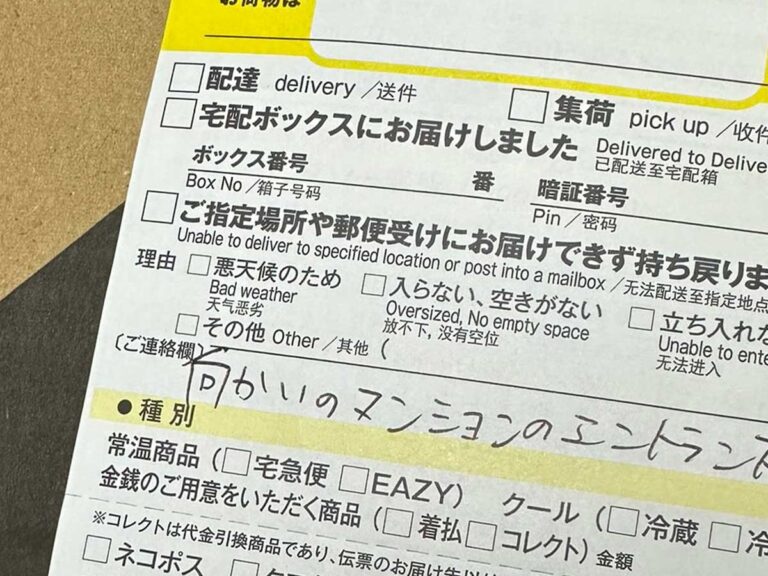 お荷物は
配達 delivery /送件
集荷 pick up /收件
宅配ボックスにお届けしました Delivered to
已配送至宅配箱
ボックス番号 番 暗証番号
Box No /箱子号码 Pin / 密码
ご指定場所や郵便受けにお届けできず持ち戻りま
Unable to deliver to specified location or post into a mailbox /无法配送至指定地点
理由 悪天候のため 入らない、空きがない 立ち入れな
Bad weather Oversized, No empty space Unable to
天气恶劣 放不下, 没有空位 无法进入
その他 Other / 其他 (
(ご連絡欄)
向かいのマンションのエントランス
●種別
常温商品 (宅急便 EAZY) クール (冷蔵 冷
金銭のご用意をいただく商品 (着払 コレクト) 金額
※コレクトは代金引換商品であり、伝票のお届け先以
ネコポス